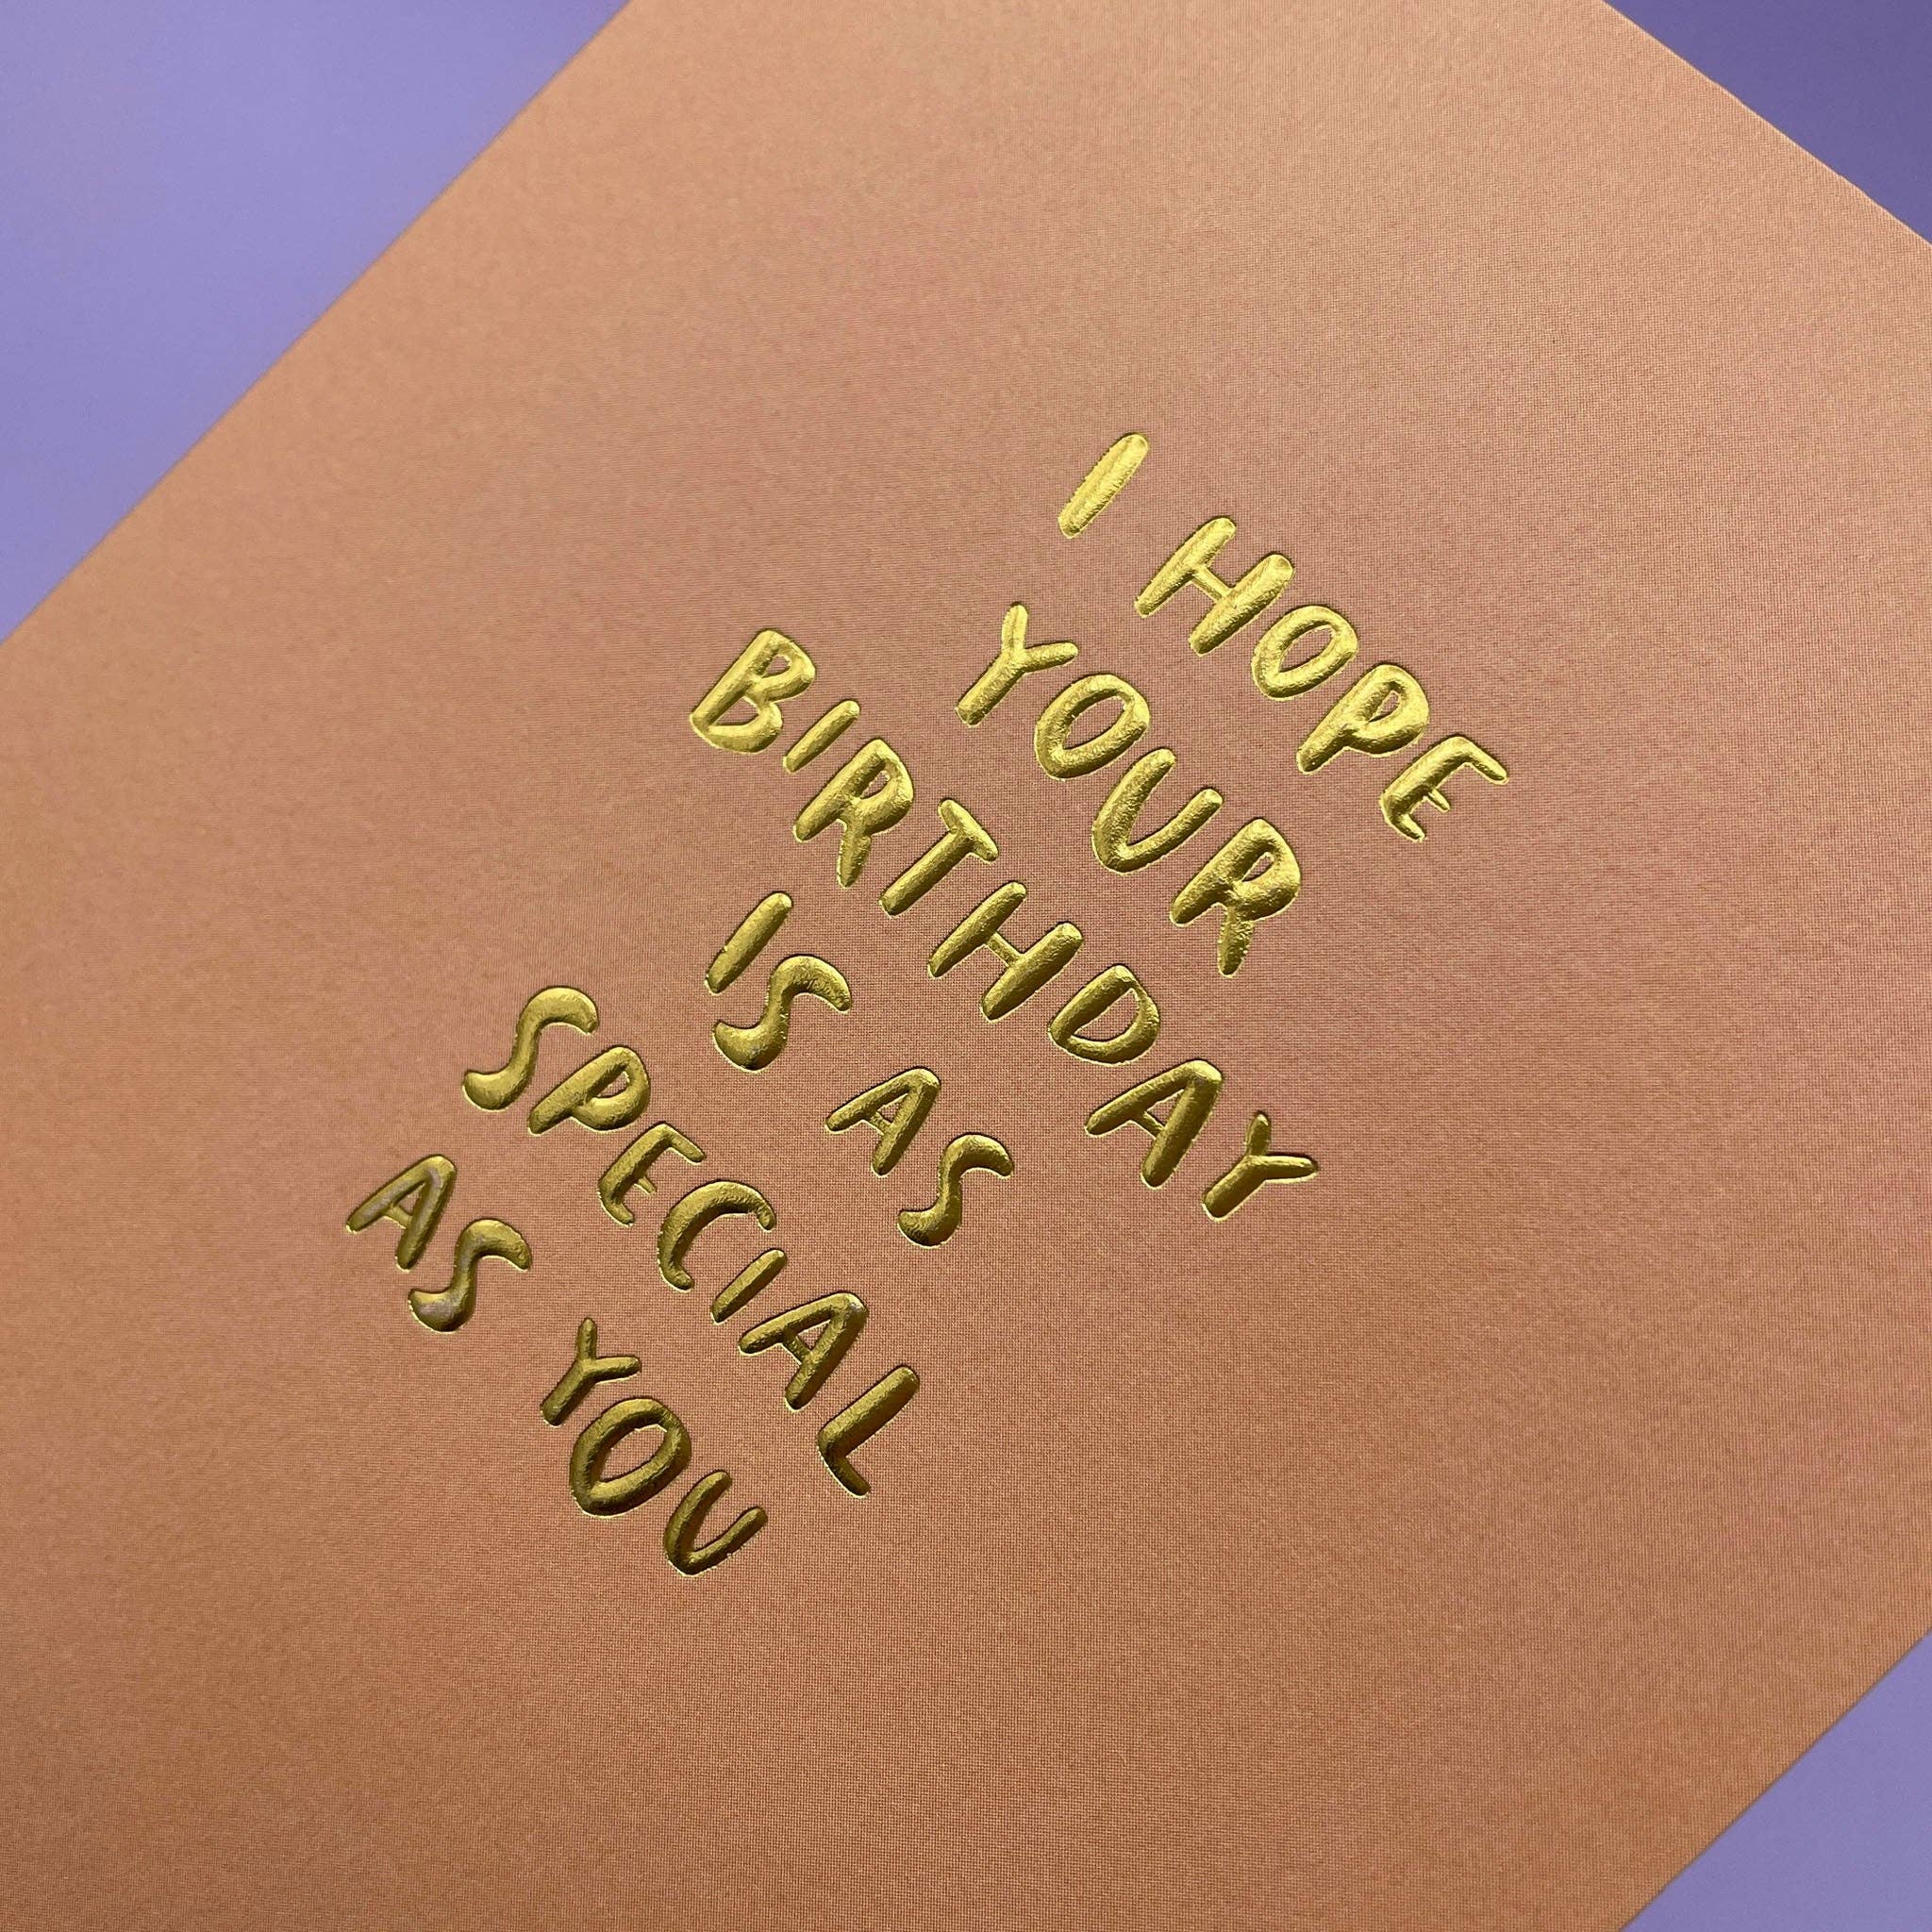 I HOPE
YOUR
BIRTHDAY
IS AS
SPECIAL
AS YOU